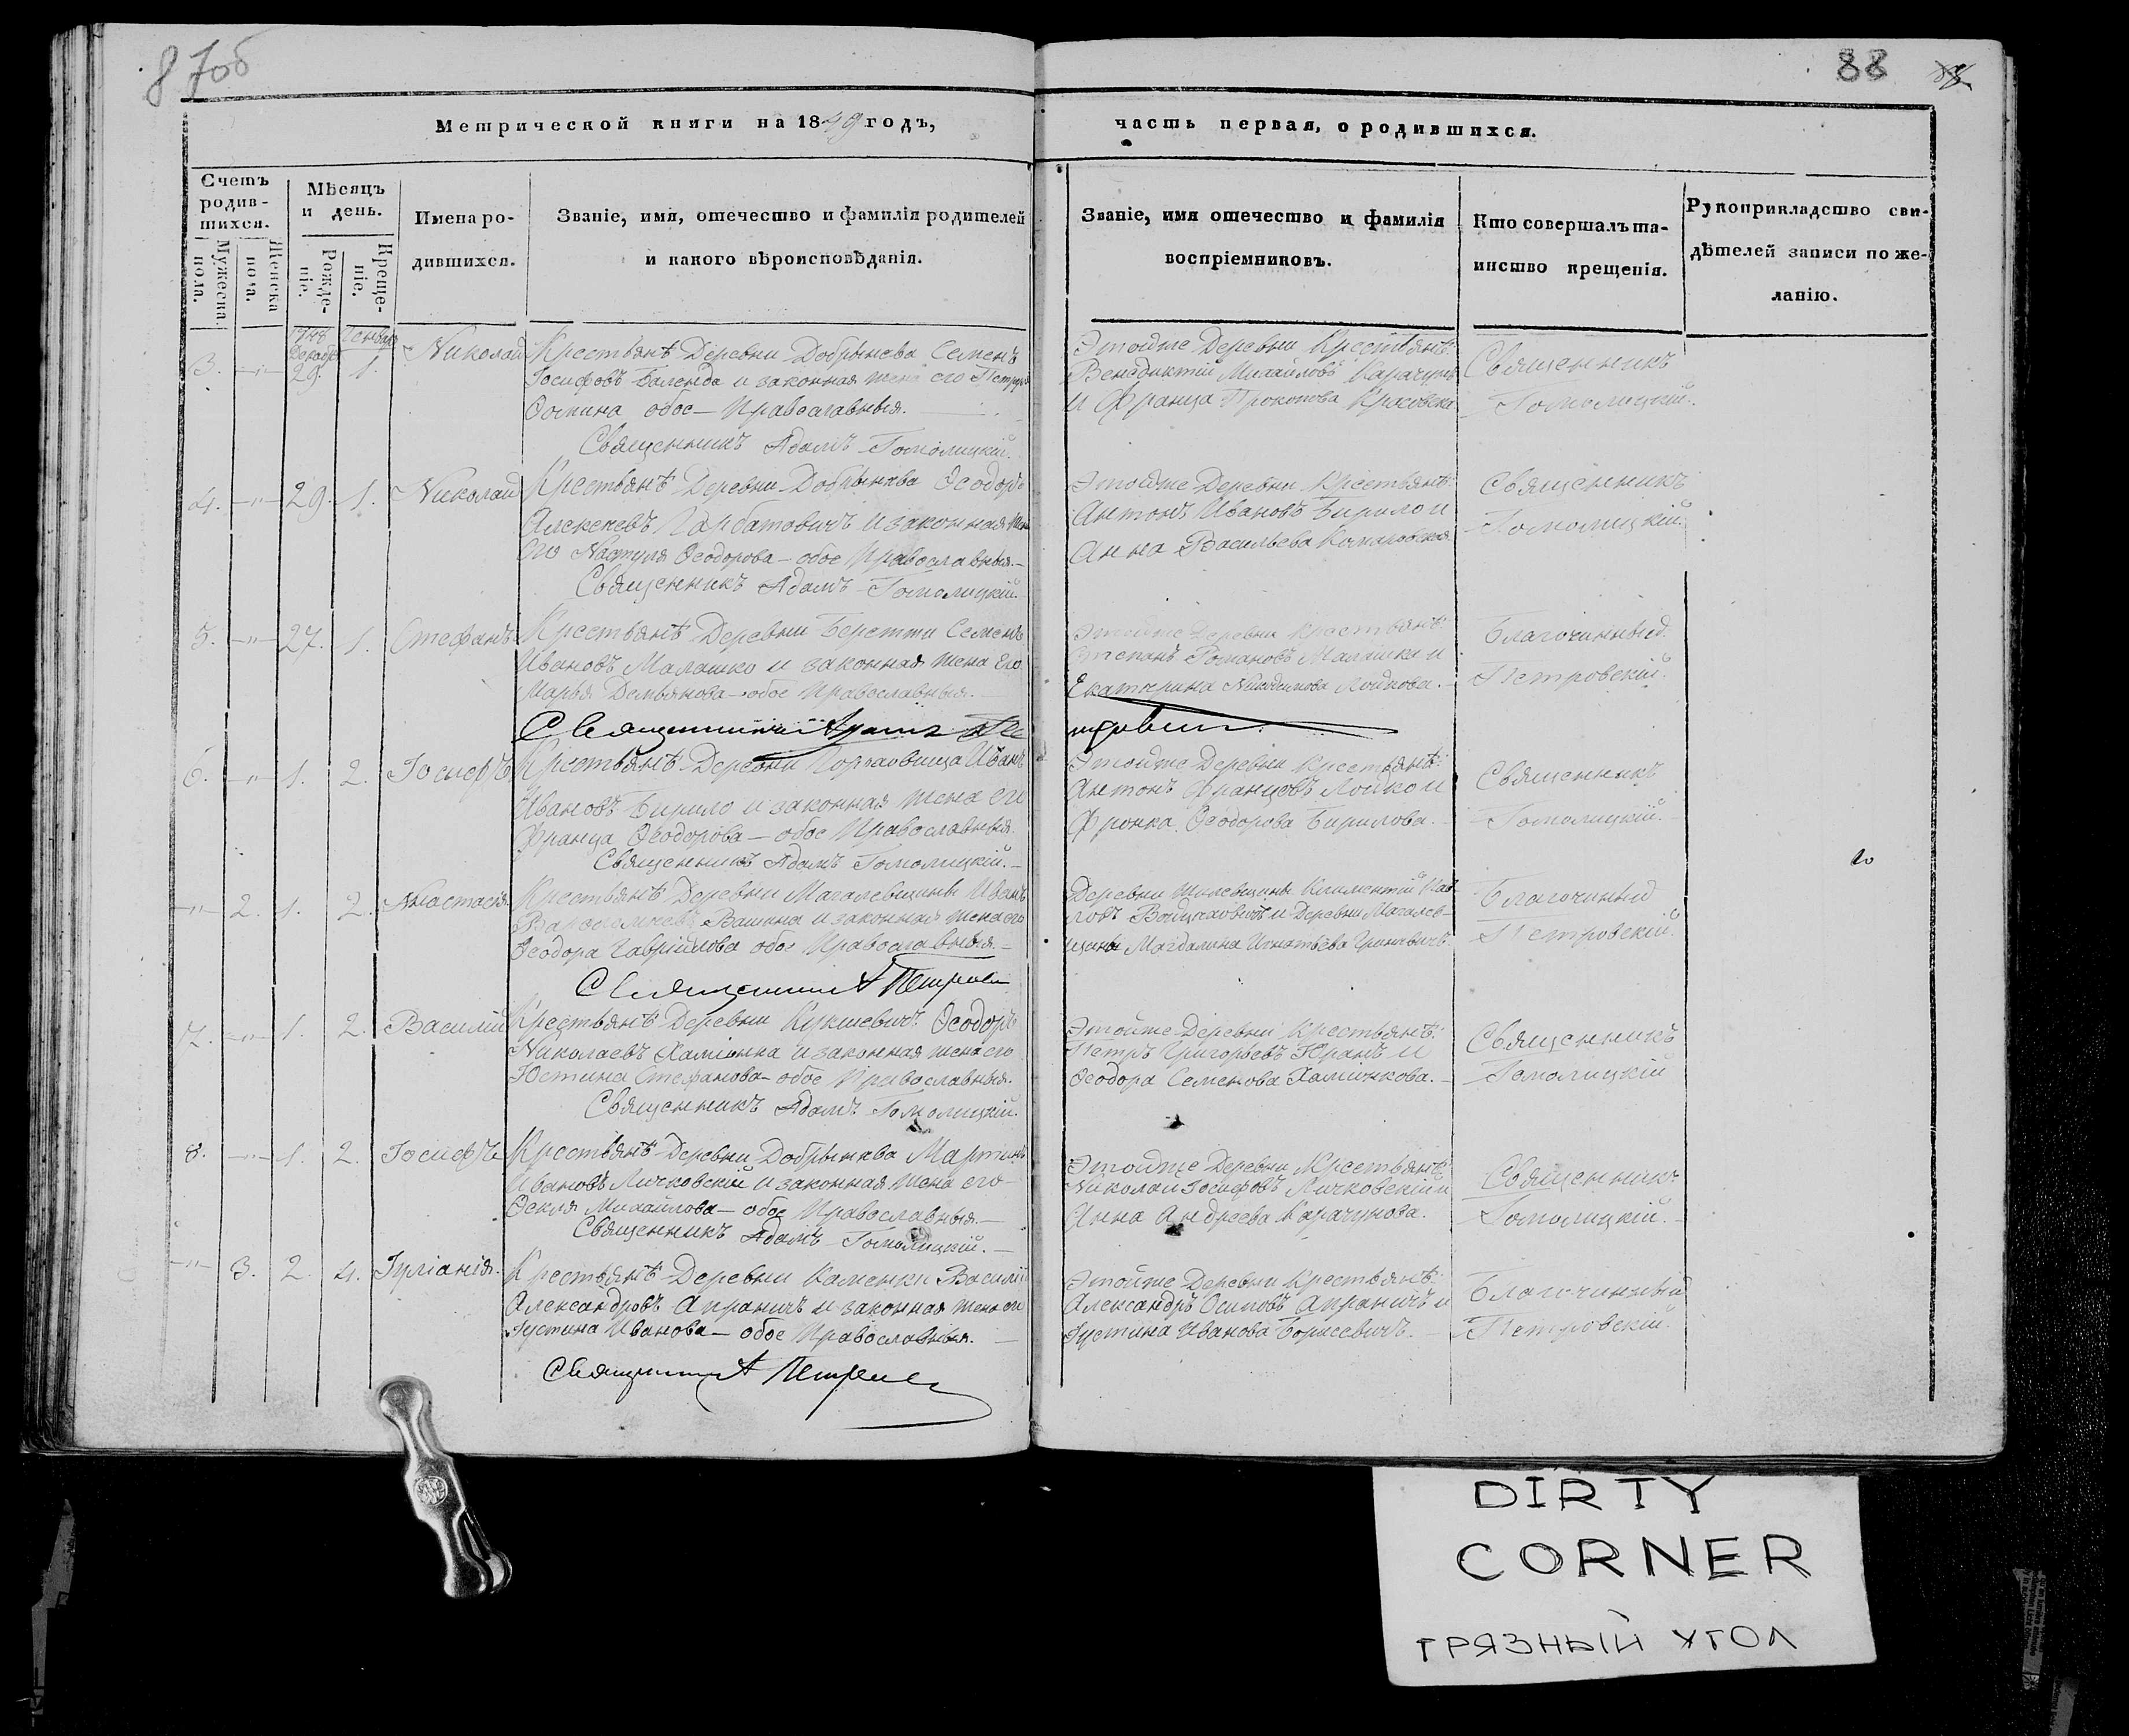 87об
88
Метрической книги на 1849 годъ,
часть первая, о родившихся.
Счетъ родив-
шихся.
Мужеска пола.
Женска пола.
Мѣсяцъ
и день.
Рожде-
ніе.
Креще-
ніе.
Имена ро-
дившихся.
Званіе, имя, отечество и фамилія родителей
и какого вѣроисповѣданія.
Званіе, имя отечество и фамилія
воспріемниковъ.
Кто совершалъ та-
инство крещенія.
Рукоприкладство сви-
дѣтелей записи по же-
ланію.
1848 Декабр Генваря
3. —"— 29. 1. Николай
Крестьянѣ Деревни Добрынева Семенъ
Іосифовъ Баленда и законная жена его
обое — Православныя.
Священникъ Адамъ Гомолицкій.
Этойже Деревни Крестьянѣ:
Венедиктій Михайловъ Карачунъ
и Франца Прокопова
Священникъ
Гомолицкій.
4. —"— 29. 1. Николай
Крестьянѣ Деревни Добрынева Ѳеодоръ
Алексеевъ Горбатовичъ и законная жена
его Настуля Ѳеодорова — обое Православныя. —
Священникъ Адамъ Гомолицкій.
Этойже Деревни Крестьянѣ:
Антонъ Ивановъ Бирило и
Анна Васильева Комаровская
Священникъ
Гомолицкій.
5. —"— 27. 1. Стефанъ
Крестьянѣ Деревни Семенъ
Ивановъ Малашко и законная жена Его
Марья Демьянова — обое Православныя.
Священникъ
Этойже Деревни Крестьянѣ:
Степанъ Романовъ Малашко и
Екатерина Никодимова Лойкова. —
Благочинный
Петровскій.
6. —"— 1. 2. Іосифъ
Крестьянѣ Деревни Иванъ
Ивановъ Бирило и законная жена его
Франца Ѳеодорова — обое Православныя.
Священникъ Адамъ Гомолицкій. —
Этойже Деревни Крестьянѣ:
Антонъ Францовъ Лойко и
Фронка Ѳеодорова Бирилова. —
Священникъ
Гомолицкій. —
—"— 2. 1. 2. Анастасія
Крестьянѣ Деревни Магалевщины Иванъ
и законная жена его
Ѳеодора Гаврилова обое Православныя. —
Священникъ А Петровскій
Деревни Климентій Пав-
ловъ и Деревни Магалев-
щины Магдалина Игнатьева Гриневичъ
Благочинный
Петровскій.
7. —"— 1. 2. Василій
Крестьянѣ Деревни Кукшевичъ Ѳеодоръ
Николаевъ Хаміонка и законная жена его
Юстина Стефанова — обое Православныя.
Священникъ Адамъ Гомолицкій.
Этойже Деревни Крестьянѣ:
Петръ Григорьевъ Юранъ и
Ѳеодора Семенова Хамінкова. —
Священникъ
Гомолицкій
8. —"— 1. 2. Іосифъ
Крестьянѣ Деревни Добрынева Мартинъ
Ивановъ Личковскій и законная жена его
Ѳекля Михайлова — обое Православныя. —
Священникъ Адамъ Гомолицкій. —
Этойже Деревни Крестьянѣ:
Николай Іосифовъ Личковскій и
Анна Андреева Карачунова.
Священникъ
Гомолицкій. —
—"— 3. 2. 4. Іуліанія.
Крестьянѣ Деревни Каменки Василій
Александровъ Апраничъ и законная жена его
Іустина Иванова — обое Православныя. —
Священникъ А Петровскій
Этойже Деревни Крестьянѣ:
Александръ Осиповъ Апраничъ и
Іустина Иванова Борисевичъ. —
Благочинный
Петровскій.
DIRTY
CORNER
ГРЯЗНЫЙ УГОЛ